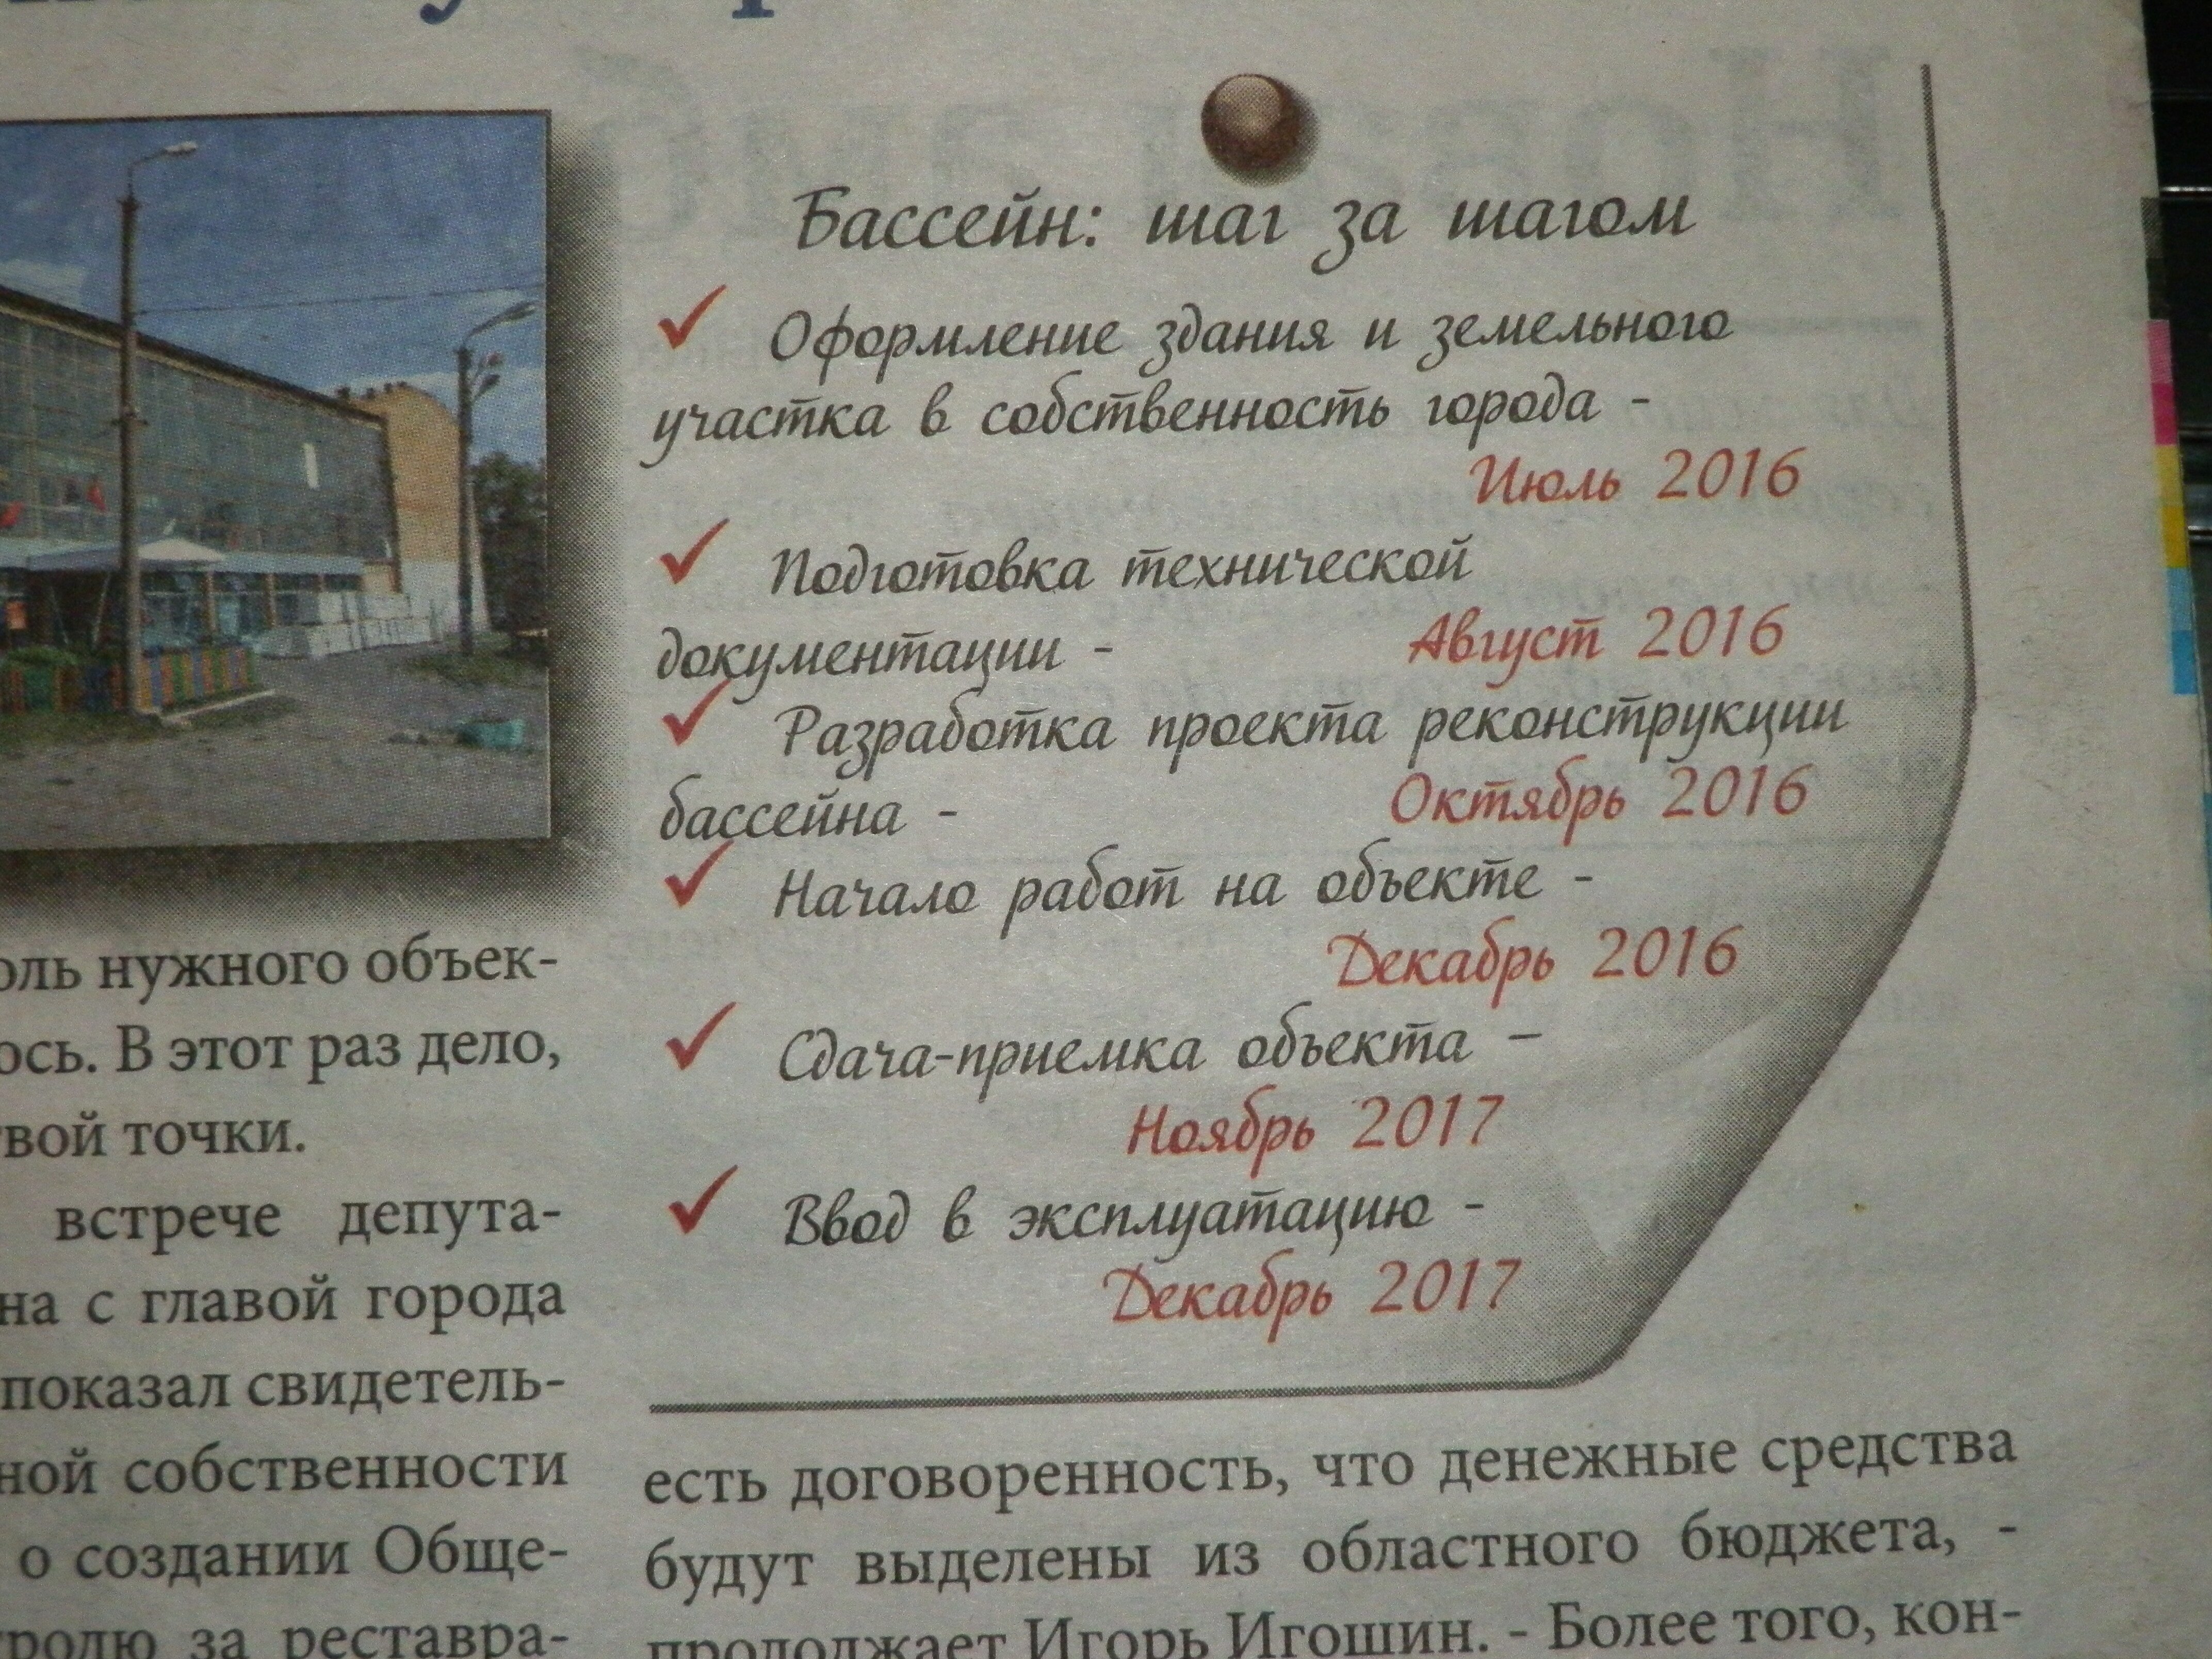 Бассейн: шаг за шагом
Оформление здания и земельного
участка в собственность города -
Июль 2016
Подготовка технической
документации - Август 2016
Разработка проекта реконструкции
бассейна - Октябрь 2016
Начало работ на объекте -
Декабрь 2016
Сдача-приемка объекта –
Ноябрь 2017
Ввод в эксплуатацию -
Декабрь 2017
оль нужного объек-
ось. В этот раз дело,
вой точки.
встрече депута-
на с главой города
показал свидетель-
ной собственности
о создании Обще-
тролю за реставра-
есть договоренность, что денежные средства
будут выделены из областного бюджета, -
продолжает Игорь Игошин. - Более того, кон-